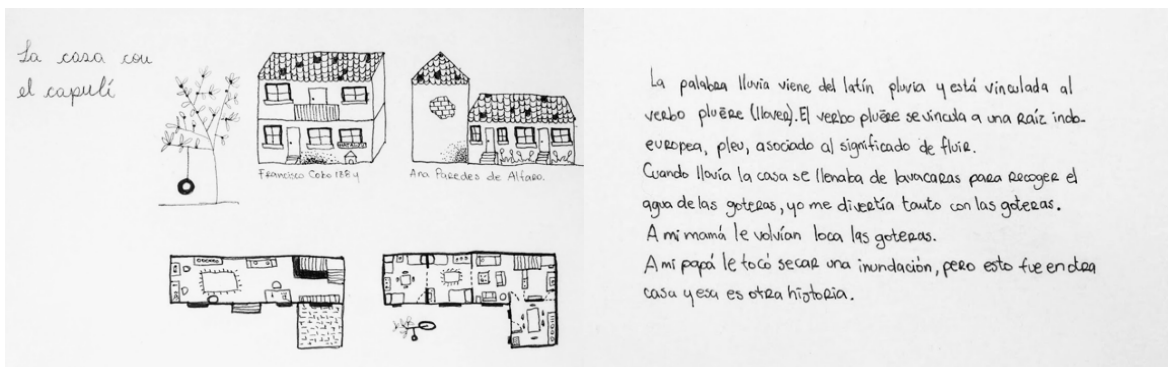 La casa con
el capulí
Francisco Cobo 1884
Ana Paredes de Alfaro.
La palabra lluvia viene del latín pluvia y está vinculada al
verbo pluĕre (llover). El verbo pluĕre se vincula a una Raíz indo-
europea, pleu, asociado al significado de fluir.
Cuando llovía la casa se llenaba de lavacaras para recoger el
agua de las goteras, yo me divertía tanto con las goteras.
A mi mamá le volvían loca las goteras.
A mi papá le tocó secar una inundación, pero esto fue en otra
casa y esa es otra historia.